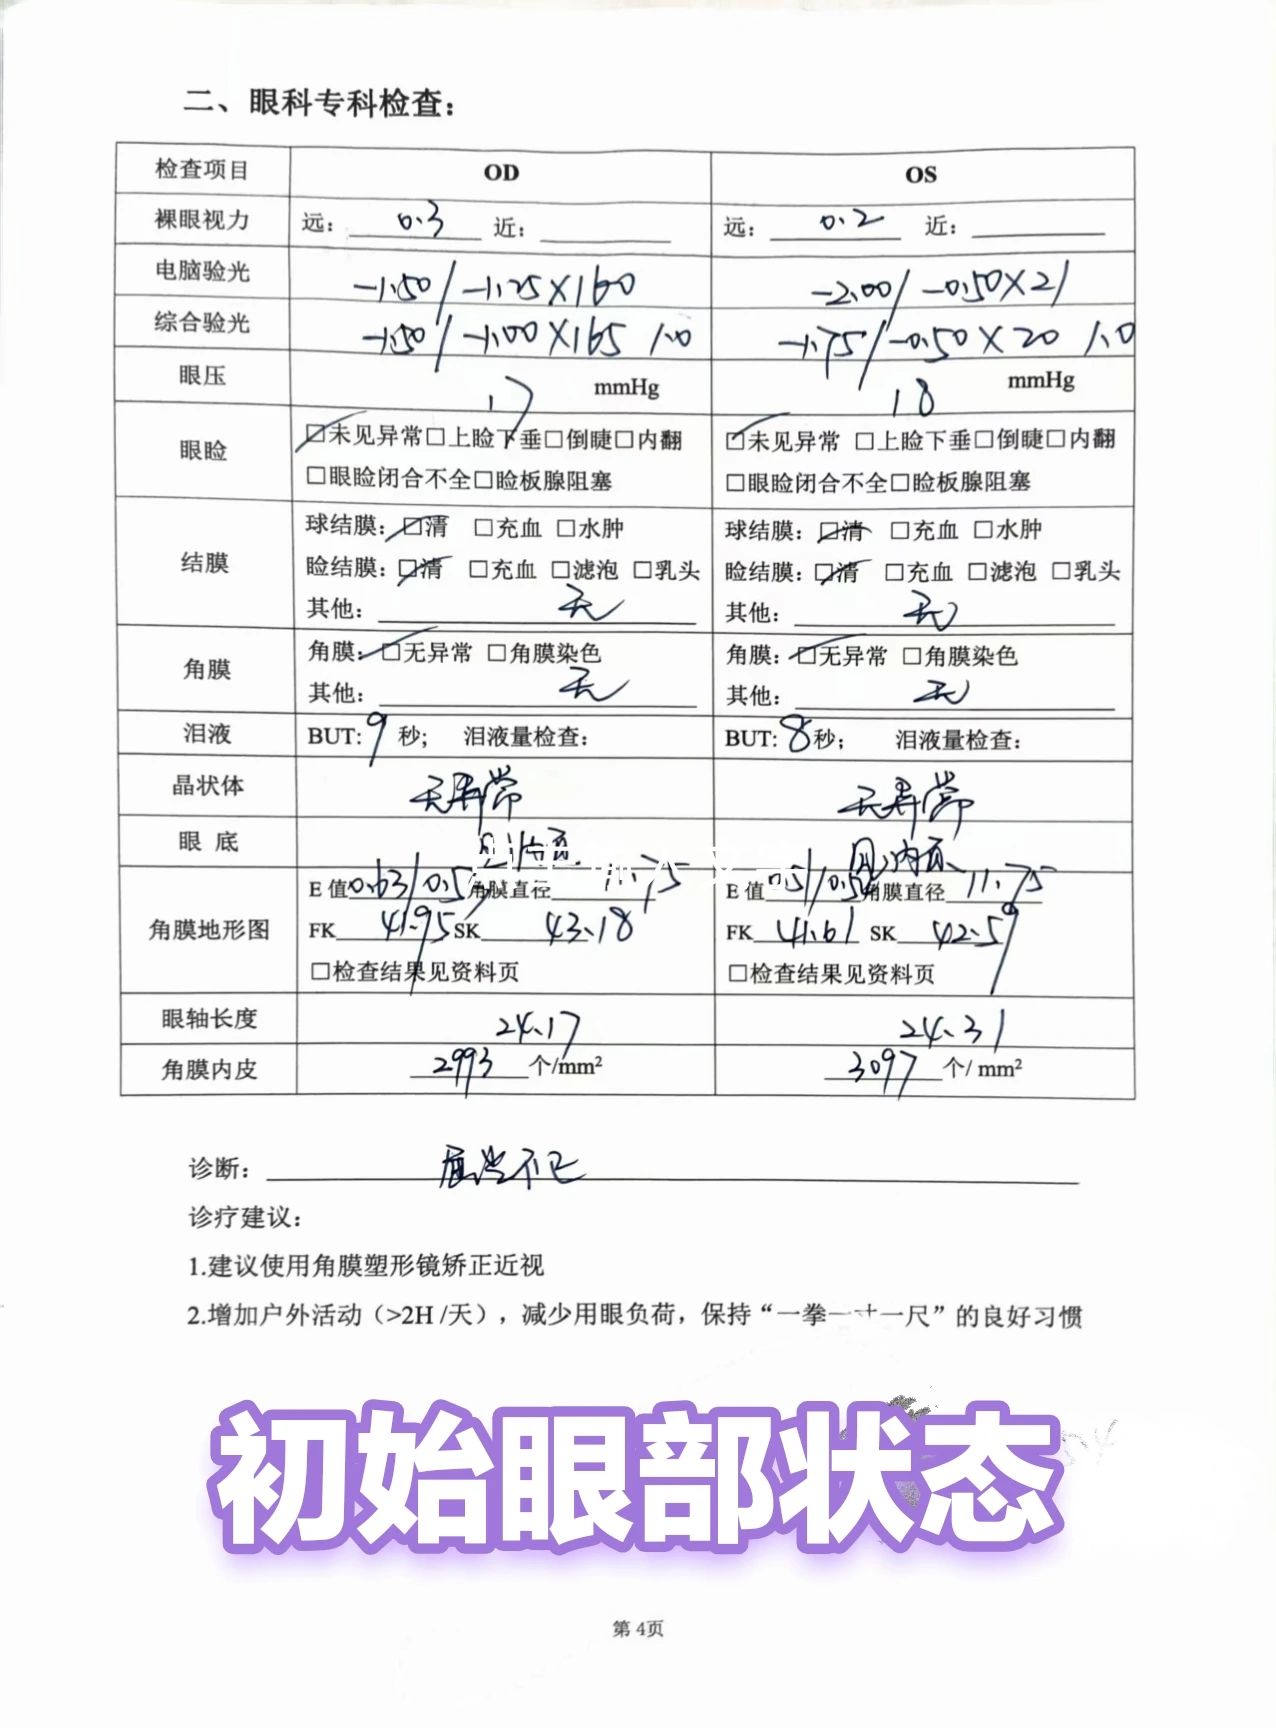 二、眼科专科检查：
检查项目 OD OS
裸眼视力 远：0.3 近： 远：0.2 近：
电脑验光 -1.50/-1.25×160 -2.00/-0.50×21
综合验光 -1.50/-1.00×165 1.0 -1.75/-0.50×20 1.0
眼压 17 mmHg 18 mmHg
眼睑 ☑未见异常□上睑下垂□倒睫□内翻 ☑未见异常 □上睑下垂□倒睫□内翻
□眼睑闭合不全□睑板腺阻塞 □眼睑闭合不全□睑板腺阻塞
结膜 球结膜：☑清 □充血 □水肿 球结膜：☑清 □充血 □水肿
睑结膜：☑清 □充血 □滤泡 □乳头 睑结膜：☑清 □充血 □滤泡 □乳头
其他：无 其他：无
角膜 角膜：☑无异常 □角膜染色 角膜：☑无异常 □角膜染色
其他：无 其他：无
泪液 BUT: 9 秒； 泪液量检查： BUT: 8 秒； 泪液量检查：
晶状体 无异常 无异常
眼 底 见内页 见内页
角膜地形图 E 值 0.63/0.57 角膜直径 11.75 E 值 0.51/0.54 角膜直径 11.75
FK 41.95 SK 43.18 FK 41.61 SK 42.59
□检查结果见资料页 □检查结果见资料页
眼轴长度 24.17 24.31
角膜内皮 2993 个/mm² 3097 个/ mm²
诊断：屈光不正
诊疗建议：
1.建议使用角膜塑形镜矫正近视
2.增加户外活动（>2H /天），减少用眼负荷，保持“一拳一寸一尺”的良好习惯
初始眼部状态
第 4页